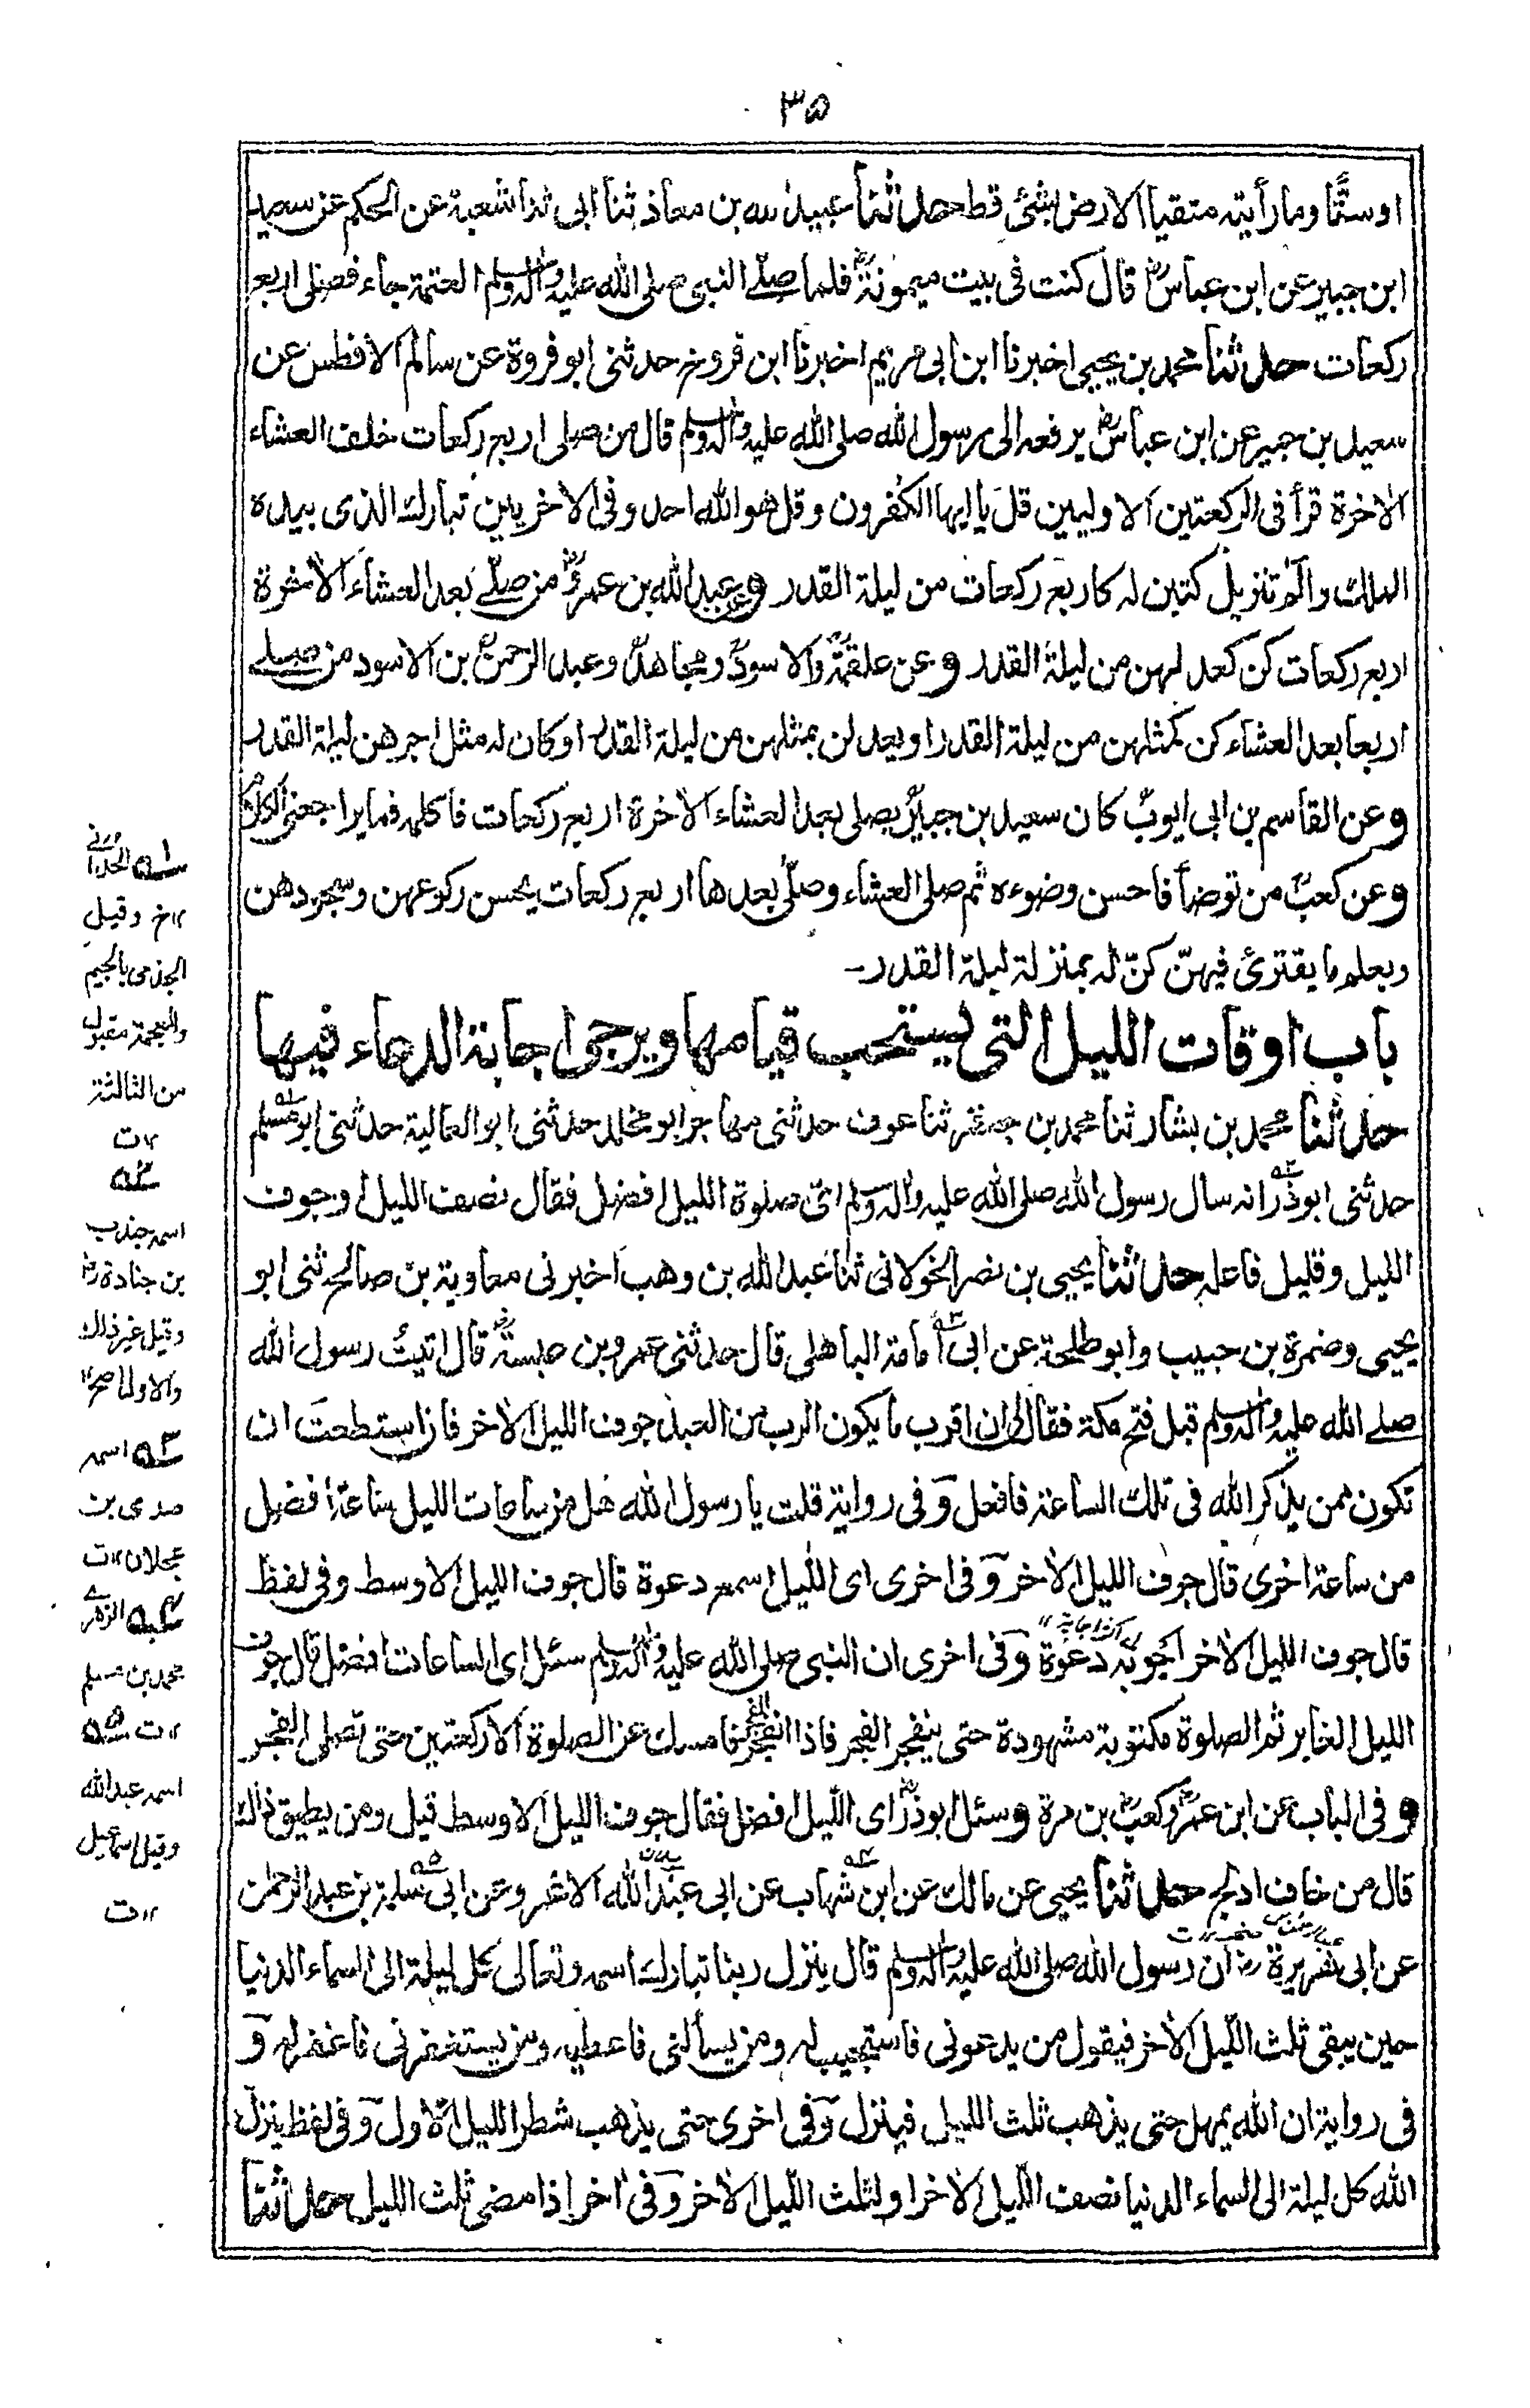 ٣۵
اوستًّا ومارأيته متقيا الارض بشئ قط حدثنا عبيد الله بن معاذ ثنا ابى ثنا شعبة عن الحكم عن سعيد
ابن جبير عن ابن عباسؓ قال كنت فى بيت ميمونةؓ فلما صلّے النبى صلى الله عليه واله وسلم العتمة جاء فصلى اربع
ركعات حدثنا محمد بن يحيى اخبرنا ابن ابى مريم اخبرنا ابن فروخ حدثنى ابو فروة عن سالم الافطس عن
سعيد بن جبير عن ابن عباسؓ يرفعه الى رسول الله صلى الله عليه واله وسلم قال من صلى اربع ركعات خلف العشاء
الاخرة قرأ فى الركعتين الاوليين قل يا ايها الكفرون وقل هو الله احد وفى الاخريين تبارك الذى بيده
الملك والٓم تنزيل كتبن له كاربع ركعات من ليلة القدر وعن عبد الله بن عمروؓ من صلّے بعد العشاء الاخرة
اربع ركعات كن كعد لهن من ليلة القدر وعن علقمةؒ والاسودؒ ومجاهدؒ وعبد الرحمنؒ بن الاسود من صلے
اربعا بعد العشاء كن كمثلهن من ليلة القدر او يعدلن بمثلهن من ليلة القدر او كان له مثل اجرهن ليلة القدر
وعن القاسم بن ابى ايوبؒ كان سعيد بن جبيرؒ يصلى بعد العشاء الاخرة اربع ركعات فاكلمه فما يراجعنى الكلام
وعن كعبؒ من توضأ فاحسن وضوءه ثم صلى العشاء وصلّى بعدها اربع ركعات يحسن ركوعهن وسجودهن
ويعلم ما يقترئ فيهنّ كنّ له بمنزلة ليلة القدر۔
باب اوقات الليل التى يستحب قيامها ويرجى اجابة الدعاء فيها
حدثنا محمد بن بشار ثنا محمد بن جعفر ثنا عوف حدثنى مهاجر ابو مخلد حدثنى ابو العالية حدثنى ابو مسلم
حدثنى ابو ذر انه سال رسول الله صلى الله عليه واله وسلم اىّ صلوة الليل افضل فقال نصف الليل او جوف
الليل وقليل فاعله حدثنا يحيى بن نصر الخولانى ثنا عبد الله بن وهب اخبرنى معاوية بن صالح ثنى ابو
يحيى وضمرة بن حبيب وابو طلحة عن ابى امامة الباهلى قال حدثنى عمرو بن عبسةؓ قال اتيتُ رسول الله
صلے الله عليه واله وسلم قبل فتح مكة فقال لى ان اقرب ما يكون الرب من العبد جوف الليل الاخر فان استطعتَ ان
تكون ممن يذكر الله فى تلك الساعة فافعل وَفى رواية قلت يا رسول الله هل من ساعات الليل ساعة افضل
من ساعة اخرى قال جوف الليل الاخر وَفى اخرى اى الليل اسمع دعوة قال جوف الليل الاوسط وفى لفظ
قال جوف الليل الاخر اجوبه دعوة وَفى اخرى ان النبى صلى الله عليه واله وسلم سئل اى الساعات افضل قال جوف
الليل الغابر ثم الصلوة مكتوبة مشهودة حتى ينفجر الفجر فاذا انفجر الفجر فامسك عن الصلوة الا ركعتين حتى تصلى الفجر
وفى الباب عن ابن عمرؓ وكعبؓ بن مرة وسئل ابو ذرؓ اى الليل افضل فقال جوف الليل الاوسط قيل ومن يطيق ذلك
قال من خاف ادلج حدثنا يحيى عن مالك عن ابن شهاب عن ابى عبد الله الاغر وعن ابى سلمة بن عبد الرحمان
عن ابى هريرة رضـ ان رسول الله صلى الله عليه واله وسلم قال ينزل ربنا تبارك اسمه وتعالى كل ليلة الى السماء الدنيا
حين يبقى ثلث الليل الاخر فيقول من يدعونى فاستجيب له ومن يسألنى فاعطيه ومن يستغفرنى فاغفر له وَ
فى رواية ان الله يمهل حتى يذهب ثلث الليل فينزل وَفى اخرى حتى يذهب شطر الليل الاول وَفى لفظ ينزل
الله كل ليلة الى السماء الدنيا نصف الليل الاخر او لثلث الليل الاخر وَفى اخر اذا مضى ثلث الليل حدثنا
١ه
١٢خ وقيل
الجذمى بالجيم
والمعجمة مقبول
من الثالثة
١٢ت
٢ه
اسمه جندب
بن جنادة رضـ
وقيل غير ذالك
والاول اصح١٢
٣ه اسمه
صدى بن
عجلان ١٢ت
٤ه الزهرے
محمد بن مسلم
١٢ت ٥ه
اسمه عبد الله
وقيل اسماعيل
١٢ت